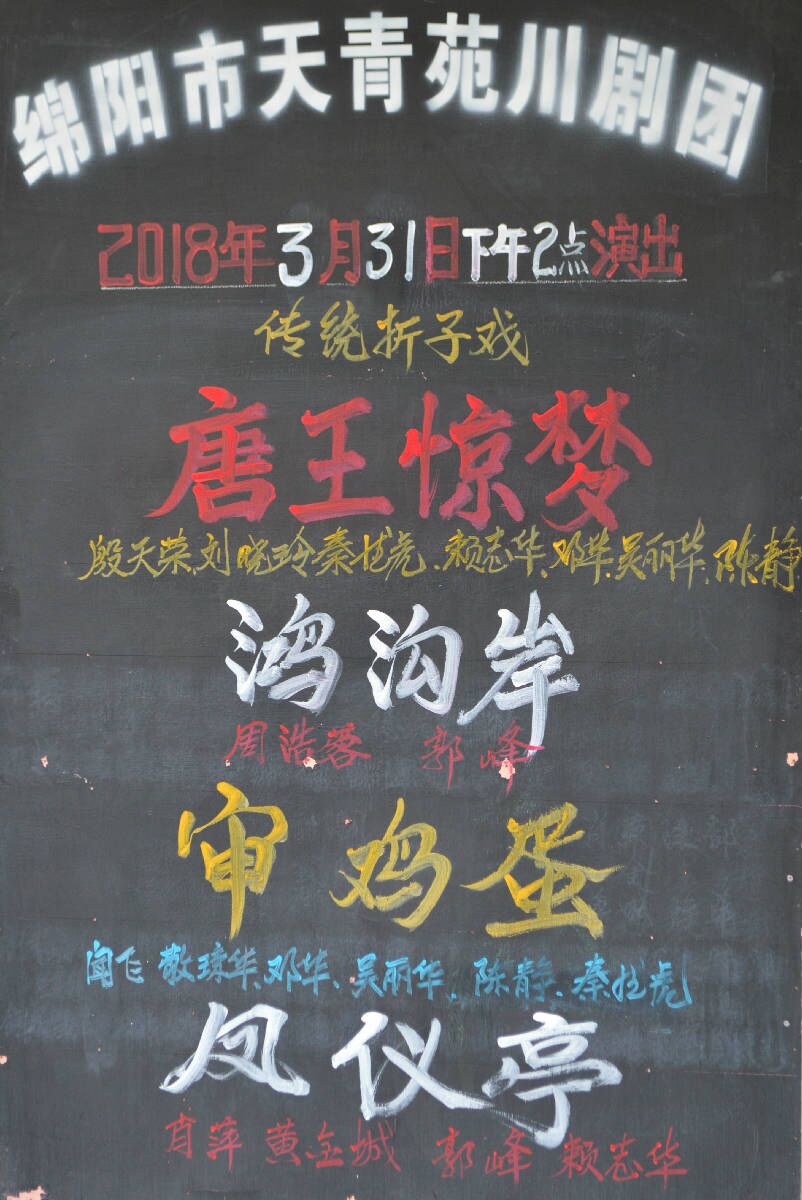 绵阳市天青苑川剧团
2018年3月31日下午2点演出
传统折子戏
唐王惊梦
殷天荣、刘晓玲、秦彪虎、赖志华、邓华、吴丽华、陈静
鸿沟岸
周浩蓉 郭峰
审鸡蛋
闻飞 敬琼华、邓华、吴丽华、陈静、秦彪虎
凤仪亭
肖萍 黄金城 郭峰 赖志华